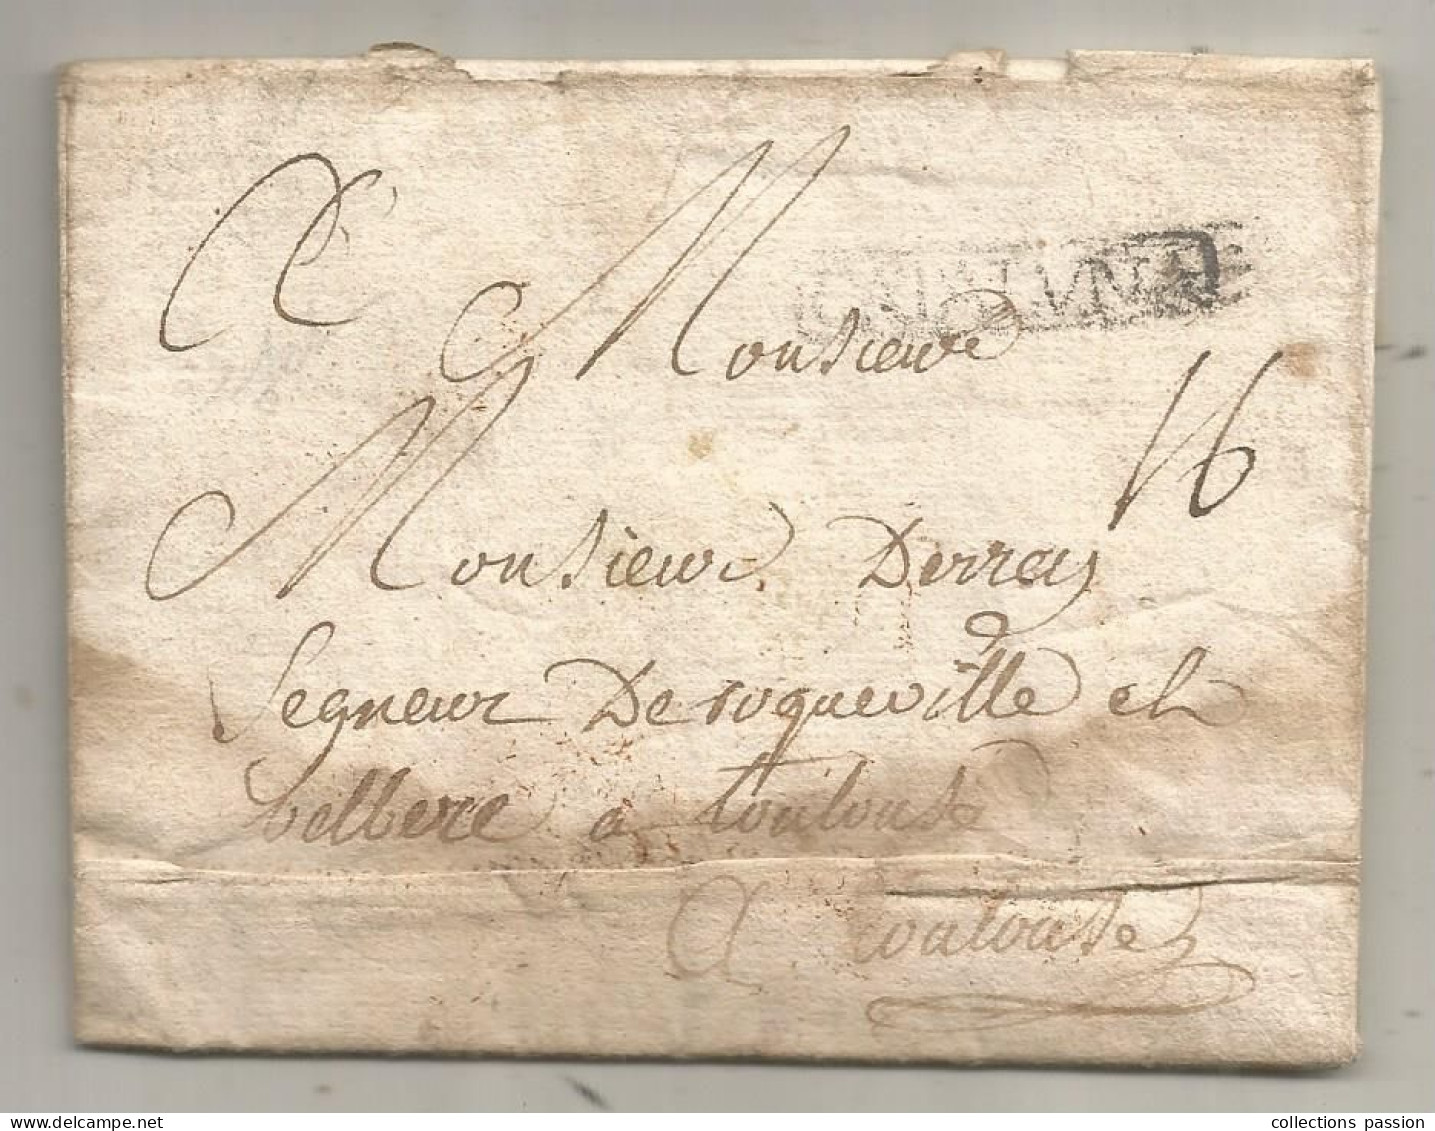 A Monsieur
16
Monsieur Derrey
Segneur De roqueville et
belbere a toulouse
A toulouse
delcampe.net
collections passion